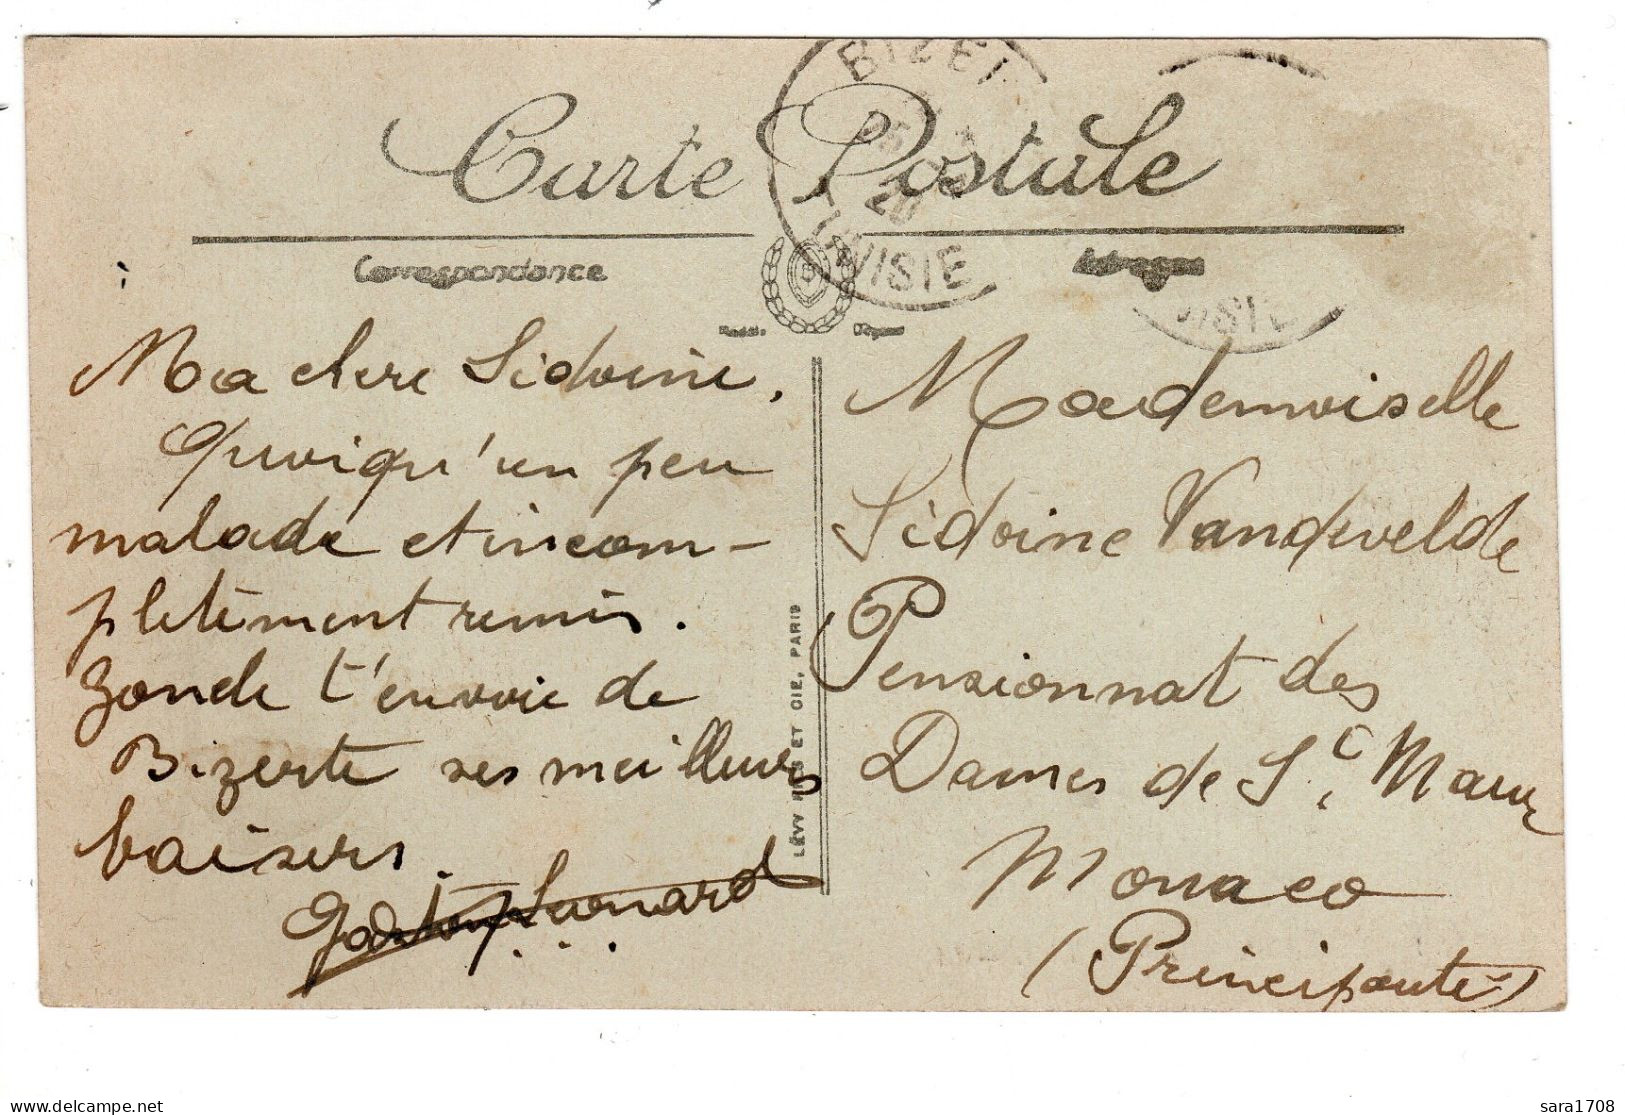 Carte Postale
BIZERTE
TUNISIE
Correspondance
Adresse
ISIE
Ma chere Sidoine,
Quoiqu'un peu
malade et incom-
pletément remis.
Zonde t'envoie de
Bizerte ses meilleurs
baisers.
Gaston Leonard
LÉVY FILS ET CIE, PARIS
Mademoiselle
Sidoine Vandevelde
Pensionnat des
Dames de St Maur
Monaco
(Principauté)
www.delcampe.net
sara1708